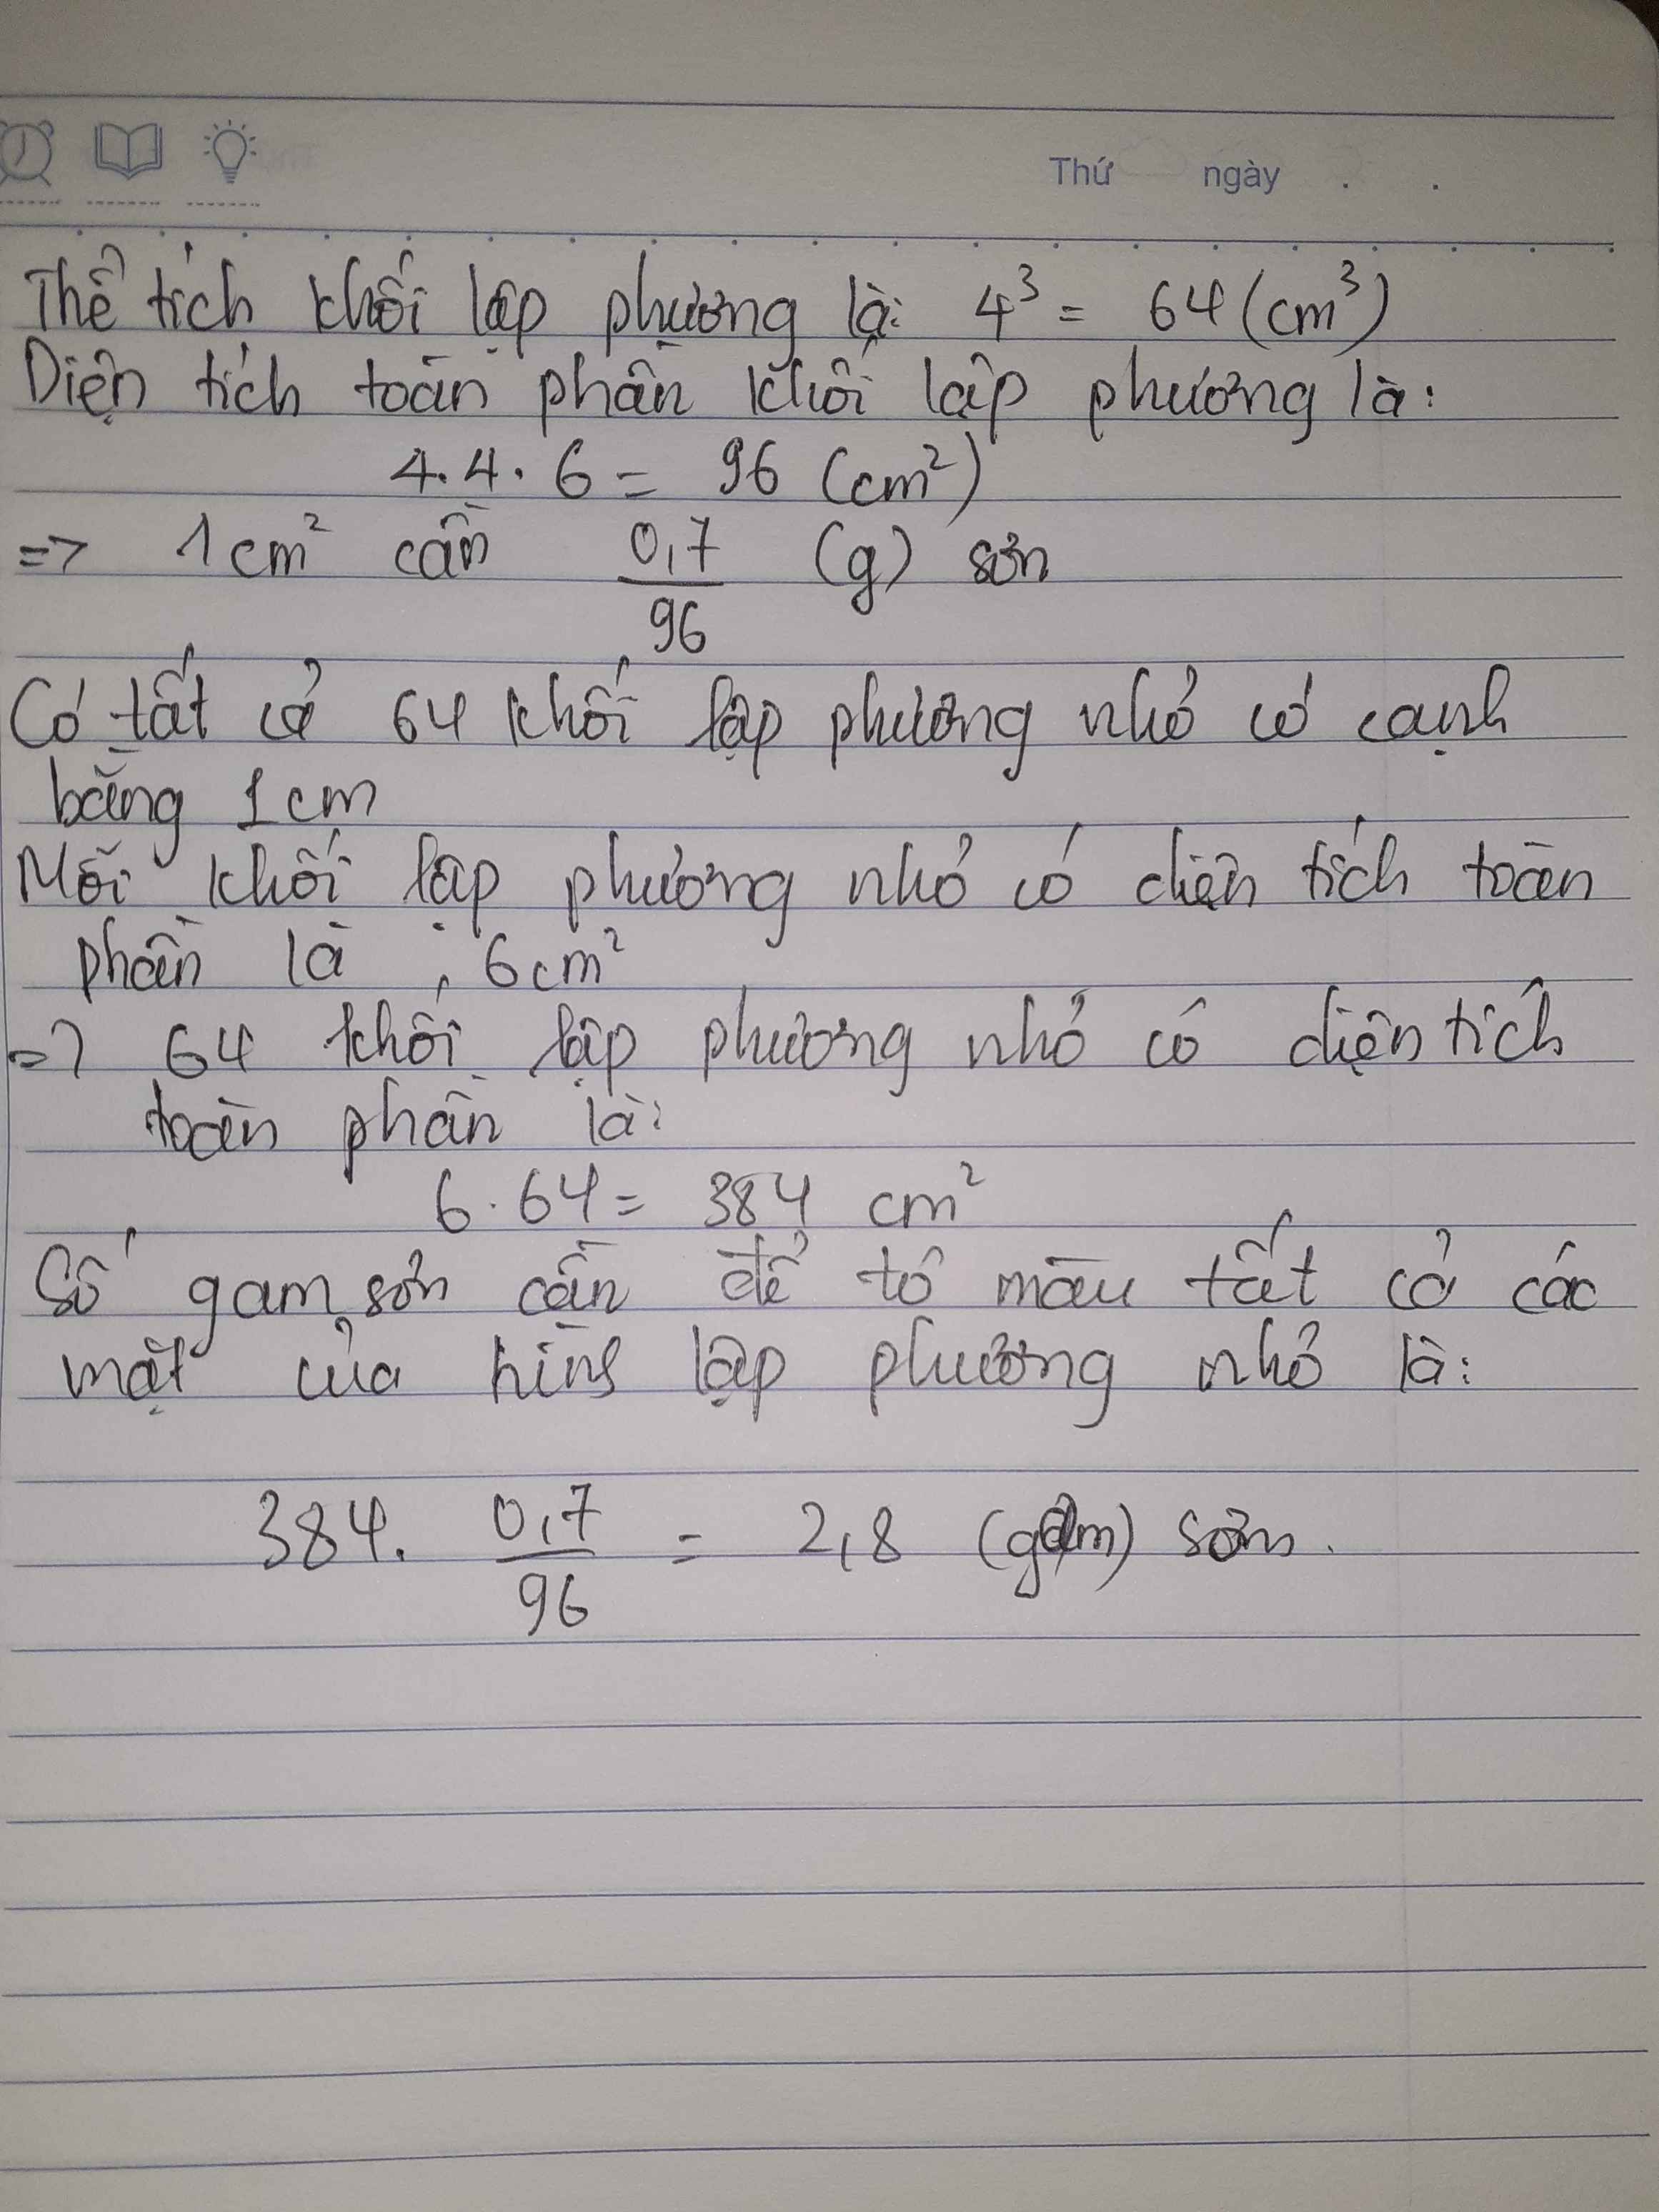 Thứ ngày . .
Thể tích khối lập phương là: 4³ = 64 (cm³)
Diện tích toàn phần khối lập phương là:
4.4.6 = 96 (cm²)
=> 1cm² cần 0,7/96 (g) sơn
Có tất cả 64 khối lập phương nhỏ có cạnh
bằng 1cm
Mỗi khối lập phương nhỏ có diện tích toàn
phần là : 6cm²
=> 64 khối lập phương nhỏ có diện tích
toàn phần là:
6.64 = 384 cm²
Số gam sơn cần để tô màu tất cả các
mặt của hình lập phương nhỏ là:
384. 0,7/96 = 2,8 (gam) sơn.